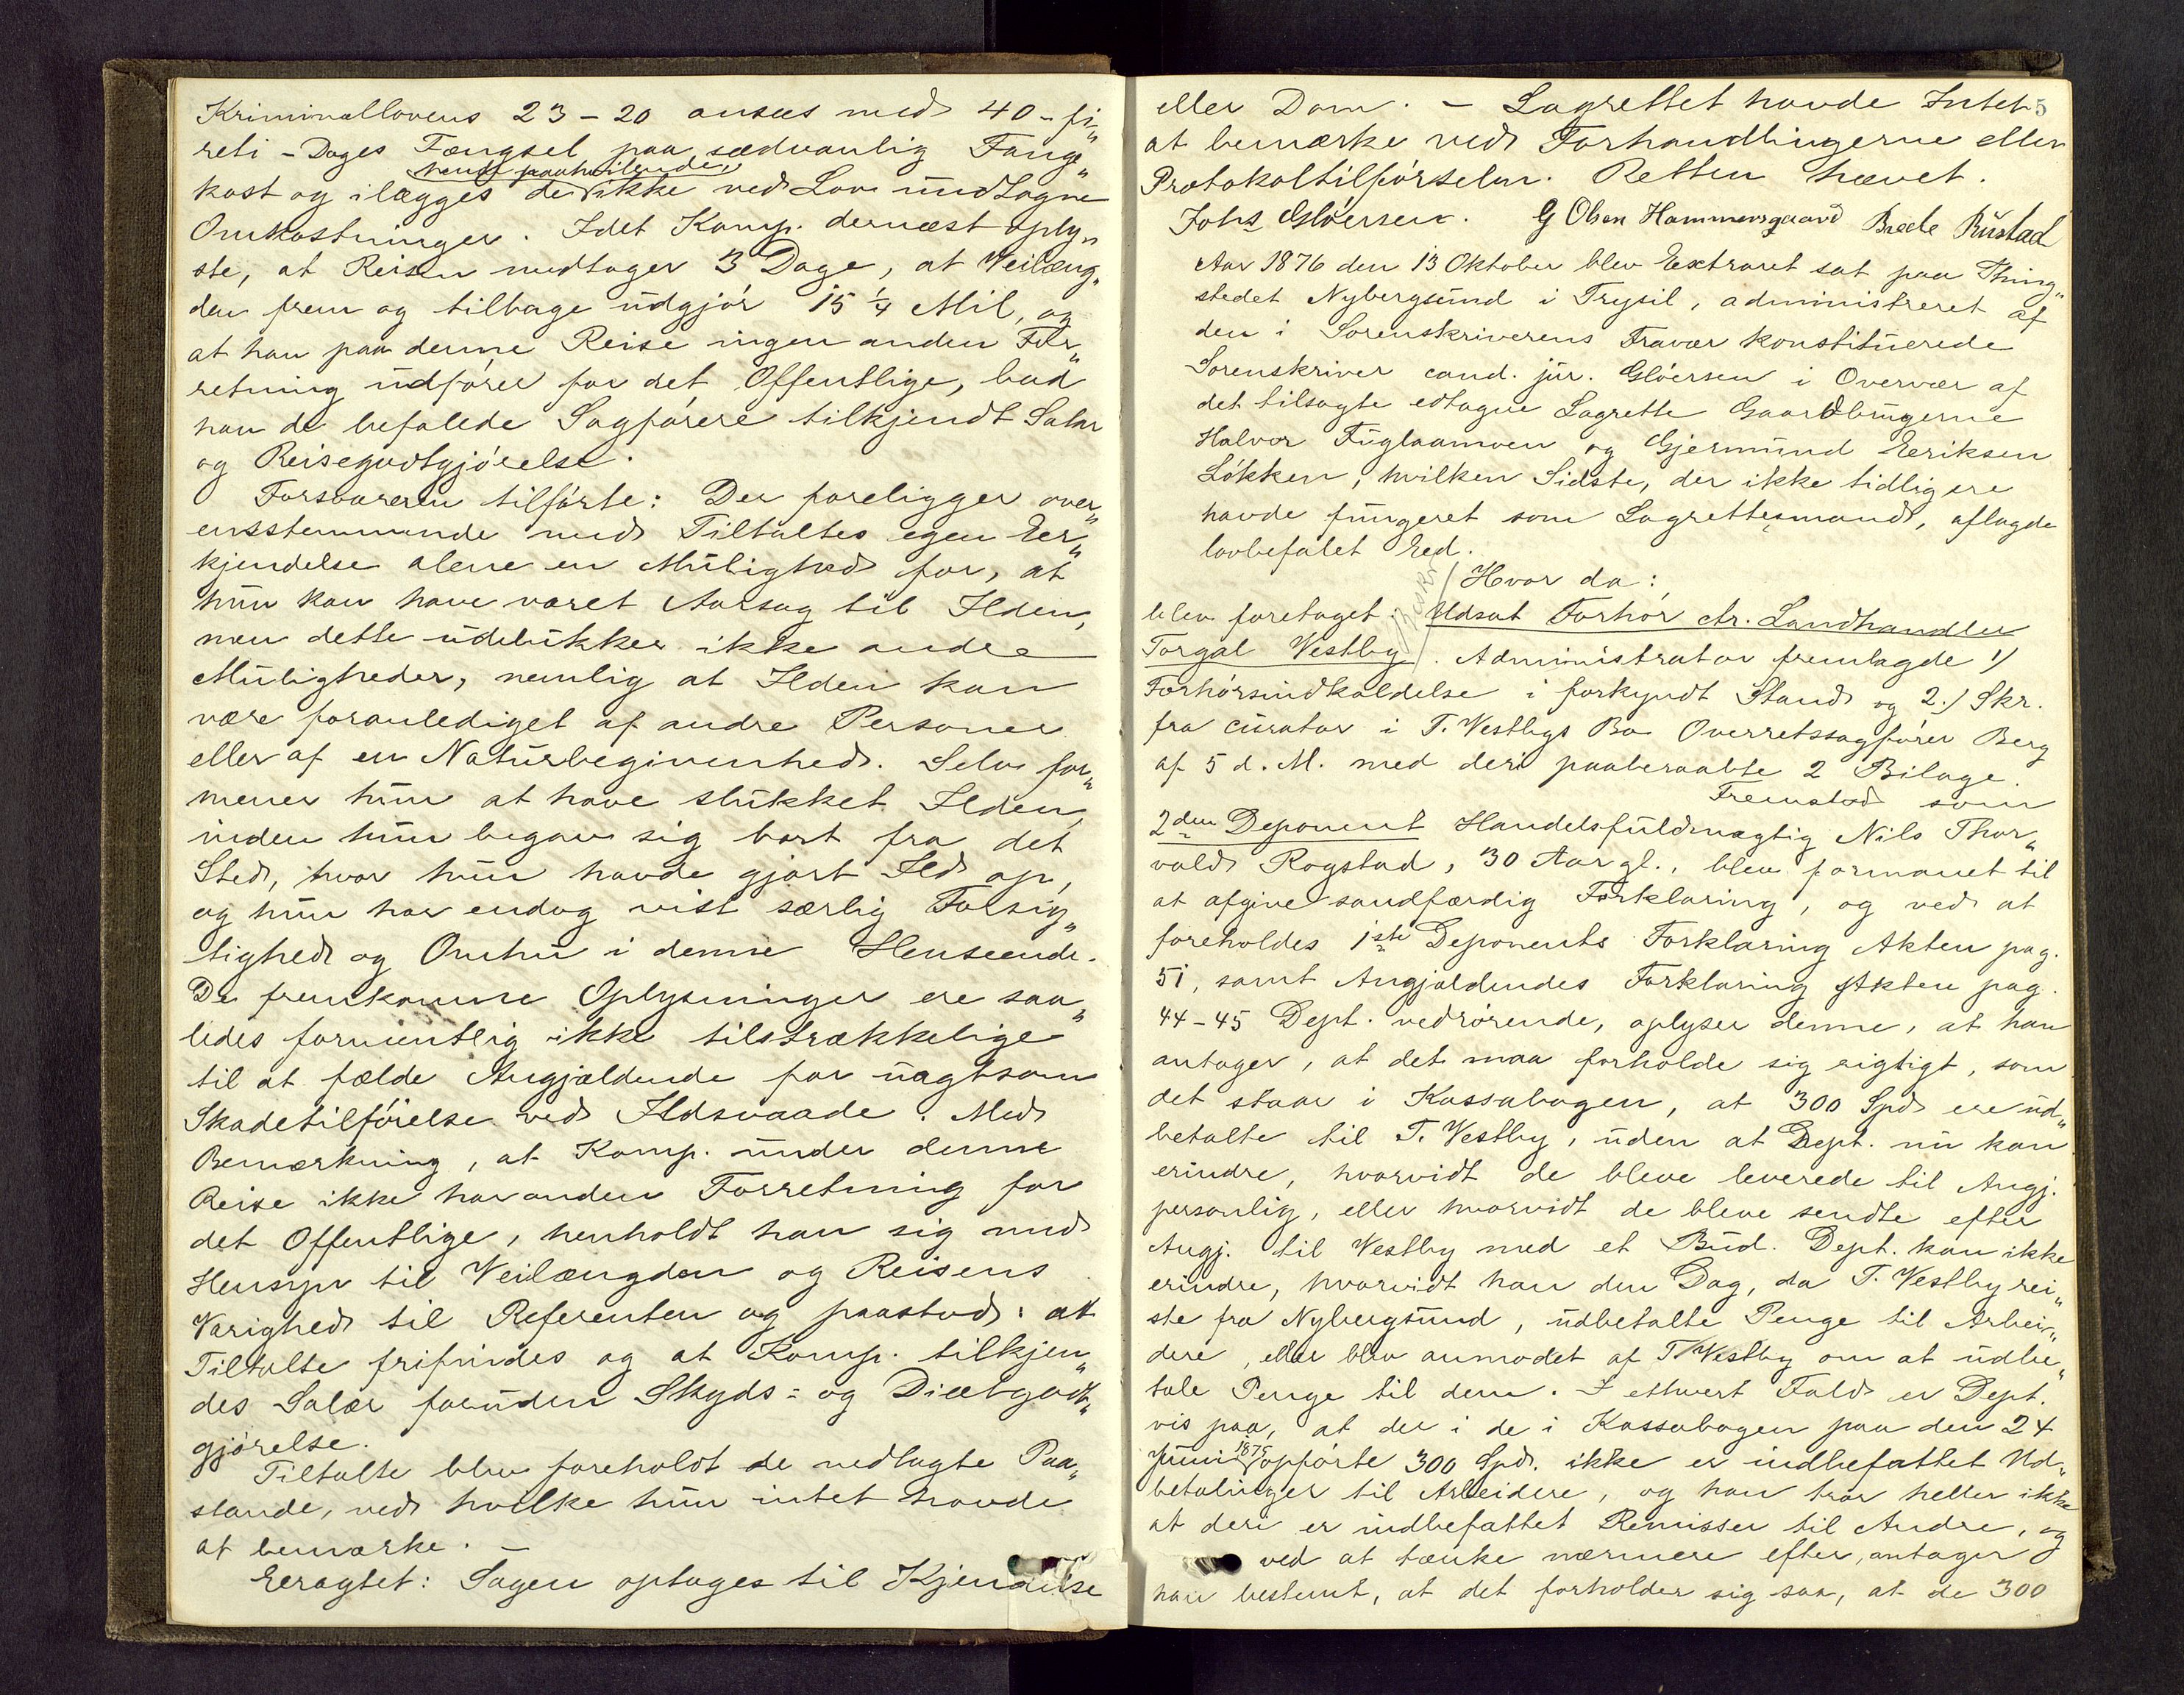 Kriminallovens 23-20 ansees med 40-fi„
reti-Dages Fængsel paa sædvanlig Fange„
hende paahvilende
kost og ilægges de ikke ved Lov undtagne
Omkostninger. Idet Komp. dernæst oply„
ste, at Reisen medtager 3 Dage, at Veilæng„
den frem og tilbage udgjør 15 ¼ Mil, og
at han paa denne Reise ingen anden For„
retning udfører for det Offentlige, bad
han de befalede Sagførere tilkjendt Salær
og Reisegodtgjørelse.
Forsvareren tilførte: Der foreligger over„
ensstemmende med Tiltaltes egen Er„
kjendelse alene en Mulighed for, at
hun kan have været Aarsag til Ilden,
men dette udelukker ikke andre
Muligheder, nemlig at Ilden kan
være foranlediget af andre Personer
eller af en Naturbegivenhed. Selv for„
mener hun at have slukket Ilden,
inden hun begav sig bort fra det
Sted, hvor hun havde gjort Ild op,
og hun har endog vist særlig Forsig„
tighed og Omhu i denne Henseende.
De fremkomne Oplysninger ere saa„
ledes formentlig ikke tilstrækkelige
til at fælde Angjældende for uagtsom
Skadetilførelse ved Ildsvaade. Med
Bemærkning, at Komp. under denne
Reise ikke har anden Forretning for
det Offentlige, henholdt han sig med
Hensyn til Veilængden og Reisens
Varighed til Referenten og paastod: at
Tiltalte frifindes og at Komp. tilkjen„
des Salær foruden Skyds- og Diætgodt„
gjørelse.
Tiltalte blev foreholdt de nedlagte Paa„
stande, ved hvilke hun intet havde
at bemærke. —
Eragtet: Sagen optages til Kjendelse
eller Dom. — Lagrettet havde Intet 5
at bemærke ved Forhandlingerne eller
Protokoltilførselen. Retten hævet.
Johs Gløersen. G Olsen Hammersgaard Brede Rustad
Aar 1876 den 13 Oktober blev Extraret sat paa Thing„
stedet Nybergsund i Trysil, administreret af
den i Sorenskriverens Fravær konstituerede
Sorenskriver cand. jur. Gløersen i Overvær af
det tilsagte edtagne Lagrette Gaardbrugerne
Halvor Fuglaamoen og Gjermund Eriksen
Løkken, hvilken Sidste, der ikke tidligere
havde fungeret som Lagrettesmand, aflagde
lovbefalet Eed.
Hvor da:
blev foretaget: Udsat Forhør ctr. Landhandler
Torgal Vestby. Administrator fremlagde 1/
Forhørsindkaldelse i forkyndt Stand og 2./ Skr.
fra curator i T. Vestbys Bo Overretssagfører Berg
af 5 d. M. med deri paaberaabte 2 Bilage.
Fremstod som
2den Deponent Handelsfuldmægtig Nils Thor„
vald Rogstad, 30 Aar gl., blev formanet til
at afgive sandfærdig Forklaring, og ved at
foreholdes 1ste Deponents Forklaring Akten pag.
51, samt Angjældendes Forklaring Akten pag.
44-45 Dept. vedrørende, oplyser denne, at han
antager, at det maa forholde sig rigtigt, som
det staar i Kassabogen, at 300 Spd ere ud„
betalte til T. Vestby, uden at Dept. nu kan
erindre, hvorvidt de bleve leverede til Angj.
personlig, eller hvorvidt de bleve sendte efter
Angj. til Vestby med et Bud. Dept. kan ikke
erindre, hvorvidt han den Dag, da T. Vestby rei„
ste fra Nybergsund, udbetalte Penge til Arbei„
dere, eller blev anmodet af T Vestby om at udbe„
tale Penge til dem. I ethvert Fald er Dept.
vis paa, at der i de i Kassabogen paa den 24
Juni 1875 opførte 300 Spd. ikke er indbefattet Ud„
betalinger til Arbeidere, og han tror heller ikke
at deri er indbefattet Remisser til Andre, og
ved at tænke nærmere efter, antager
han bestemt, at det forholder sig saa, at de 300